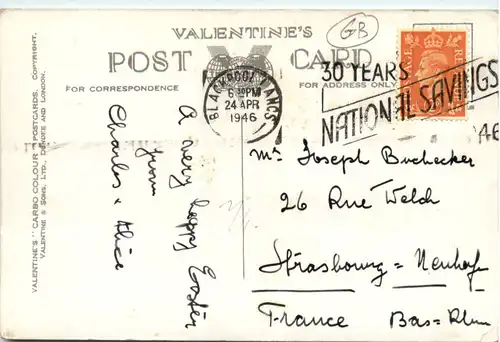 VALENTINE'S
POST CARD
FOR CORRESPONDENCE
FOR ADDRESS ONLY
GB
BLACKPOOL, LANCS
6- PM
24 APR
1946
30 YEARS
NATIONAL SAVINGS
POSTAGE REVENUE
VALENTINE'S "CARBO COLOUR" POSTCARDS. COPYRIGHT.
VALENTINE & SONS, LTD., DUNDEE AND LONDON.
A very happy Easter
from
Charles & Alice
Mr Joseph Buchecker
26 Rue Welch
Strasbourg = Neuhof
France Bas=Rhin